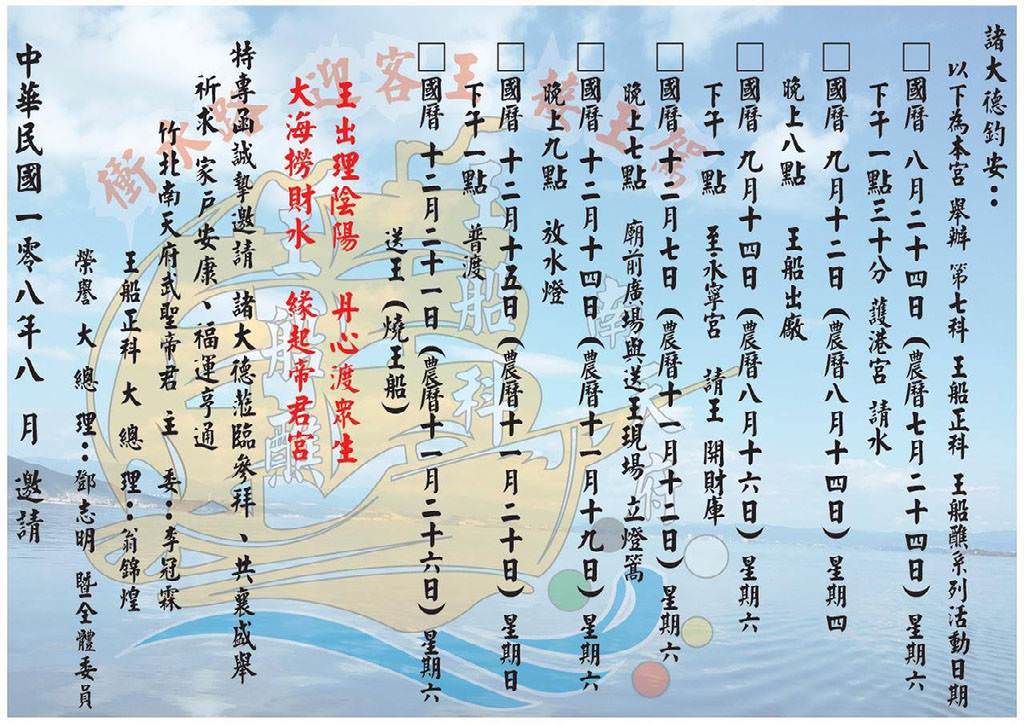 諸大德鈞安：
以下為本宮 舉辦 第七科 王船正科 王船醮系列活動日期
□國曆 八月二十四日（農曆七月二十四日）星期六
下午一點三十分 護港宮 請水
□國曆 九月十二日（農曆八月十四日）星期四
晚上八點 王船出廠
□國曆 九月十四日（農曆八月十六日）星期六
下午一點 至水寧宮 請王 開財庫
□國曆 十二月七日（農曆十一月十二日）星期六
晚上七點 廟前廣場與送王現場 立燈篙
□國曆 十二月十四日（農曆十一月十九日）星期六
晚上九點 放水燈
□國曆 十二月十五日（農曆十一月二十日）星期日
下午一點 普渡
□國曆 十二月二十一日（農曆十一月二十六日）星期六
送王（燒王船）
王出理陰陽 丹心渡眾生
大海撈財水 緣起帝君宮
特專函誠摯邀請 諸大德蒞臨參拜、共襄盛舉
祈求 家戶安康、福運亨通
竹北南天府武聖帝君 主 委：李冠霖
王船正科 大 總 理：翁錦煌
榮譽 大 總 理：鄧志明 暨全體委員
中華民國一零八年八 月 邀請
衝水路 迎客王 接王駕
南天府
王船科
王船醮